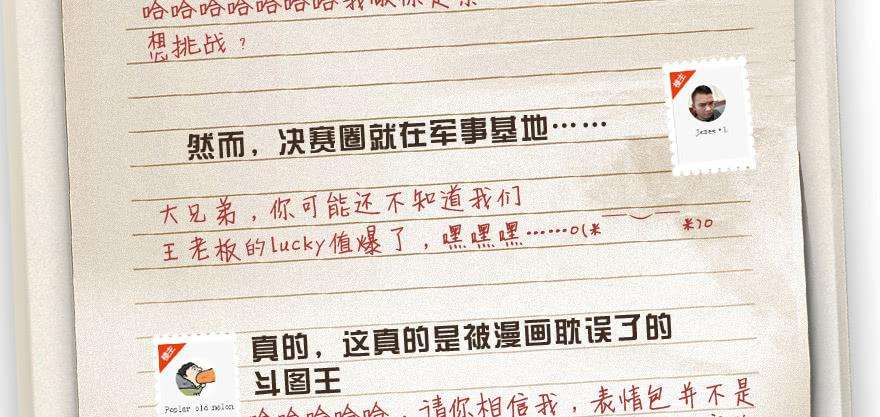 哈哈哈哈哈哈哈我敬你是条
想挑战？
楼主
James·L
然而，决赛圈就在军事基地……
大兄弟，你可能还不知道我们
王老板的lucky值爆了，嘿嘿嘿……o(*￣︶￣*)o
楼主
Poplar old melon
真的，这真的是被漫画耽误了的
斗图王
哈哈哈哈哈，请你相信我，表情包并不是